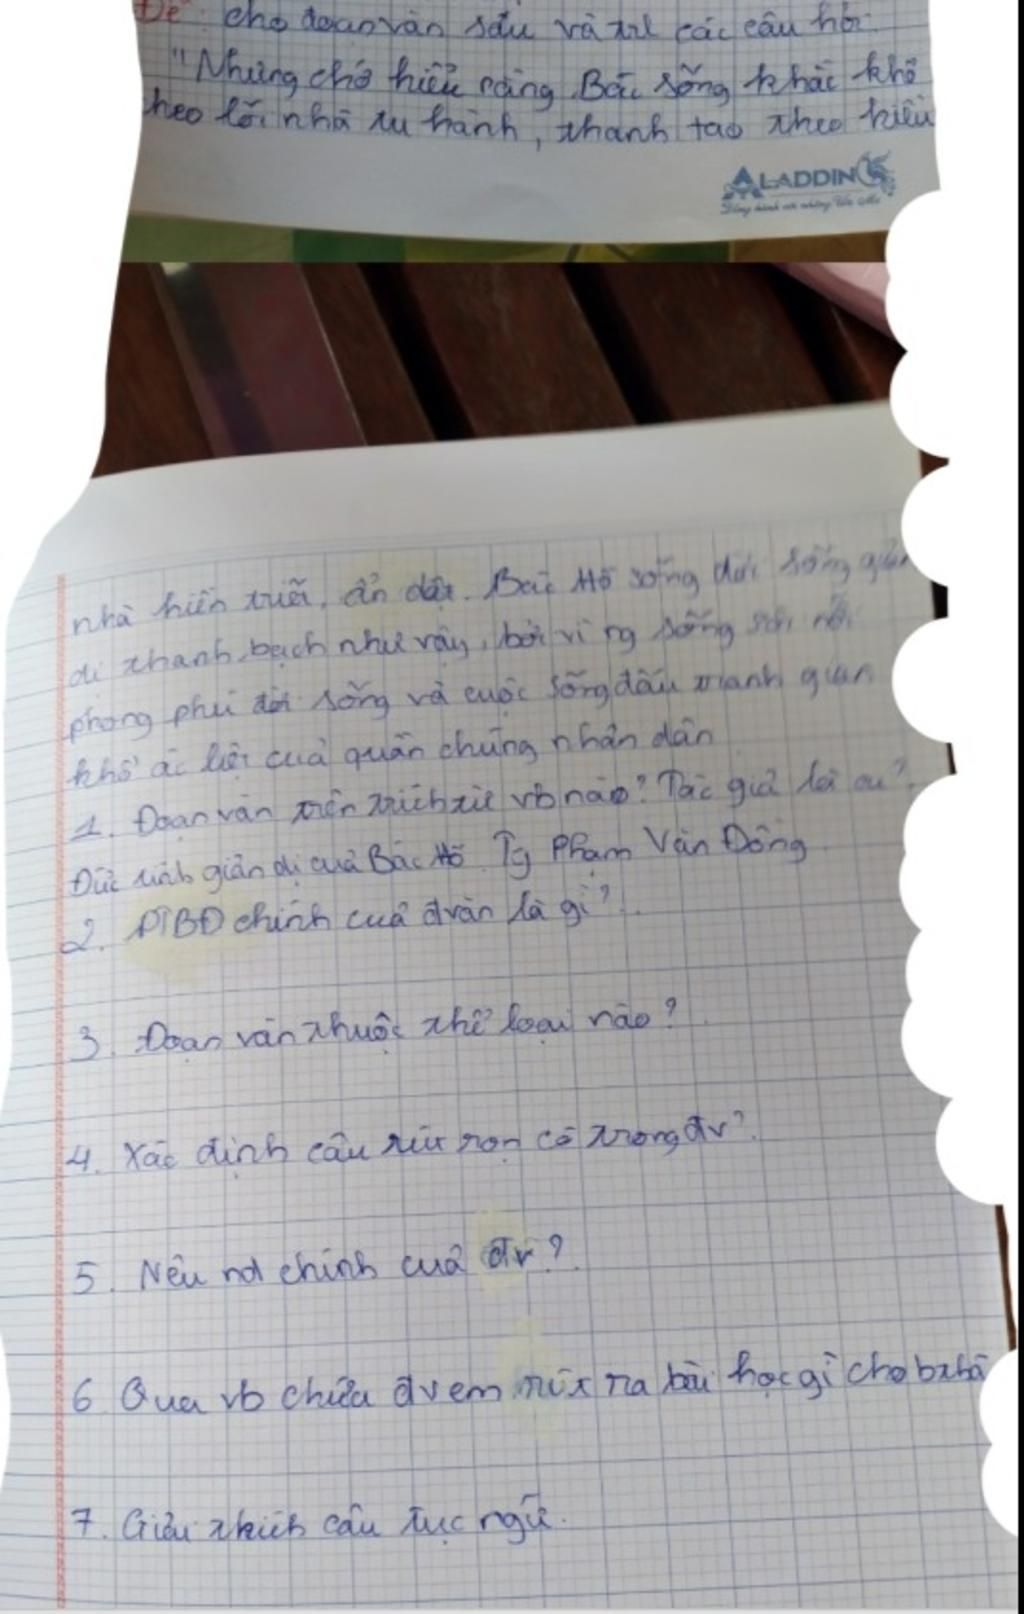 Đề: cho đoạn văn sau và trl các câu hỏi:
"Nhưng chớ hiểu rằng Bác sống khắc khổ
theo lối nhà tu hành, thanh tao theo kiểu
ALADDIN
nhà hiền triết, ẩn dật. Bác Hồ sống đời sống giản
dị thanh bạch như vậy, bởi vì ng sống sôi nổi
phong phú đời sống và cuộc sống đấu tranh gian
khổ ác liệt của quần chúng nhân dân
1. Đoạn văn trên trích từ vb nào? Tác giả là ai?
Đức tính giản dị của Bác Hồ. Tg Phạm Văn Đồng
2. PTBĐ chính của đvăn là gì?
3. Đoạn văn thuộc thể loại nào?
4. Xác định câu rút rọn có trong đv?
5. Nêu nd chính cuả đv?
6 Qua vb chứa đv em rút ra bài học gì cho bthâ
7. Giải thích câu tục ngữ.